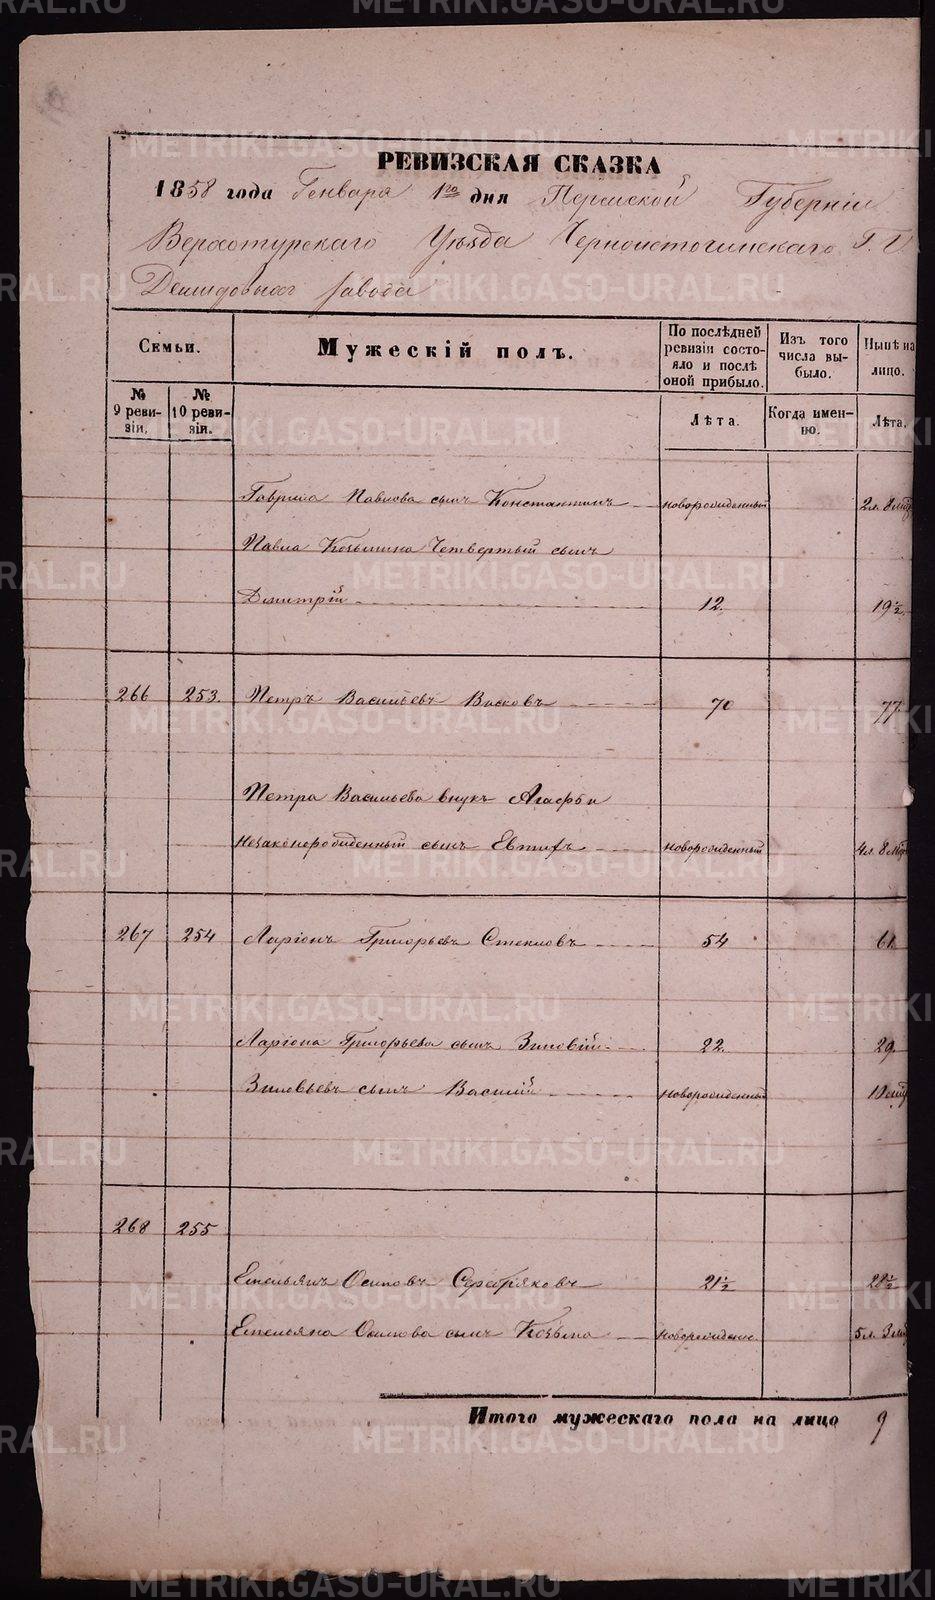 РЕВИЗСКАЯ СКАЗКА
1858 года Генваря 1го дня Пермской Губерніи
Верхотурскаго Уѣзда Черноисточинскаго Г. Г.
Демидовыхъ завода
Семьи.
Мужескій полъ.
По послѣдней ревизіи состояло и послѣ оной прибыло.
Изъ того числа выбыло.
Нынѣ на лицо.
№ 9 ревизіи.
№ 10 ревизіи.
Лѣта.
Когда именно.
Лѣта.
Гаврила Павлова сынъ Константинъ новорожденный 2 л. 8 мѣс
Павла Козьмина Четвертый сынъ
Дмитрій 12. 19½
266 253. Петръ Васильевъ Васковъ 70 77.
Петра Васильева внукъ Агафьи
незаконорожденный сынъ Евтифъ новорожденный 4 л. 8 мѣс
267 254 Ларіонъ Григорьевъ Стекловъ 54 61.
Ларіона Григорьева сынъ Зиновій 22. 29.
Зиновьевъ сынъ Василій новорожденный
268 255
Емельянъ Осиповъ Серебряковъ 21½ 28½
Емельяна Осипова сынъ Козьма новорожден. 5 л. 3 мѣс
Итого мужескаго пола на лицо 9
METRIKI.GASO-URAL.RU